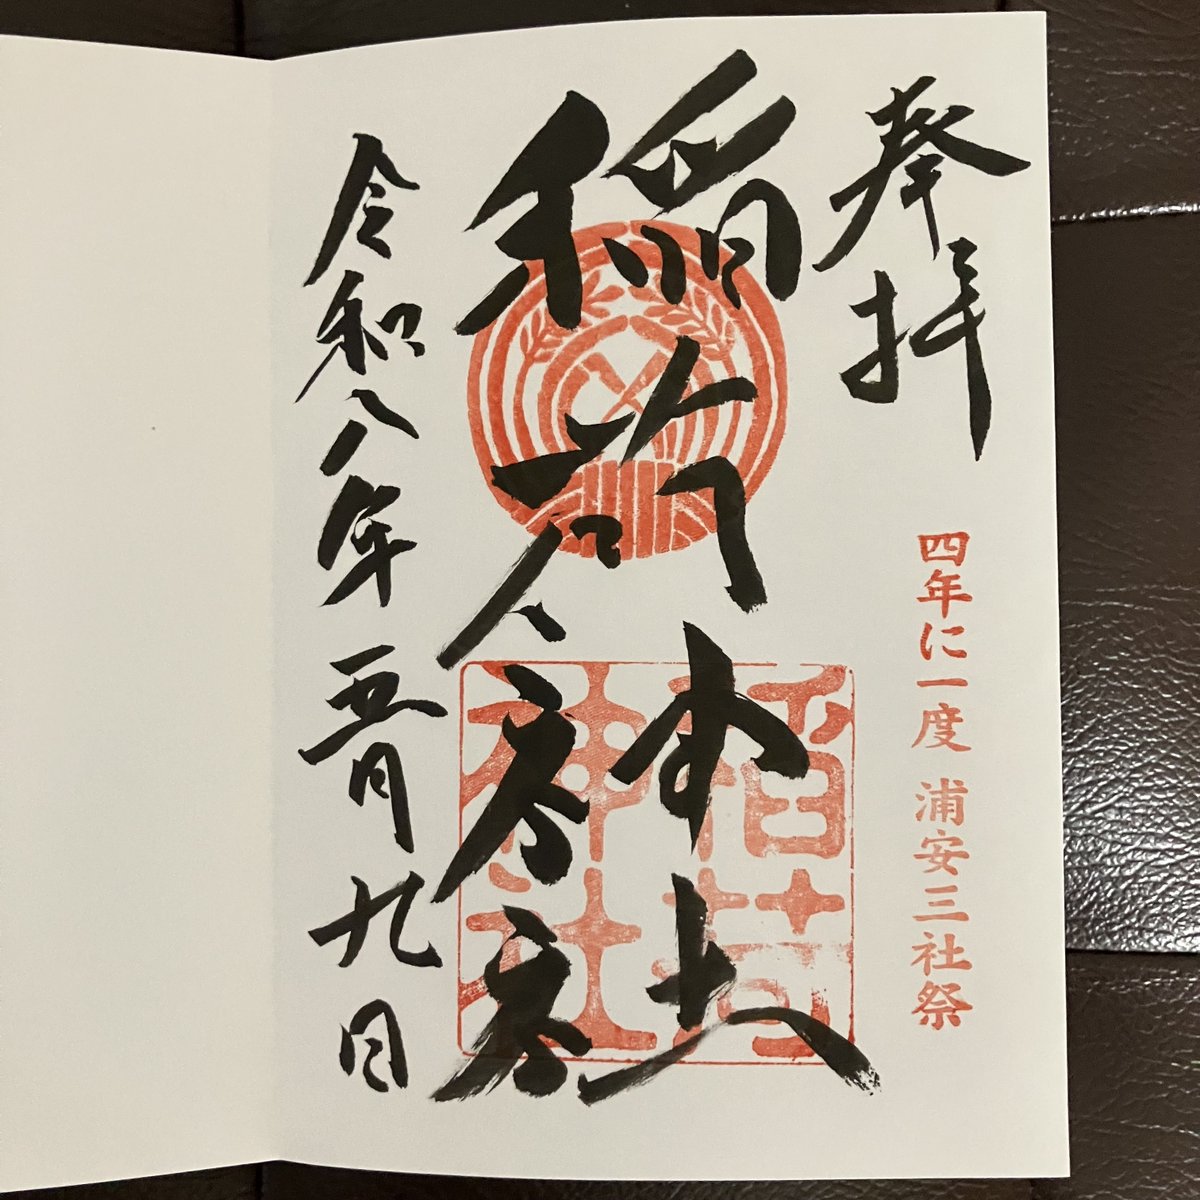 奉拝
四年に一度 浦安三社祭
稲荷神社
稲荷
神社
令和八年五月九日